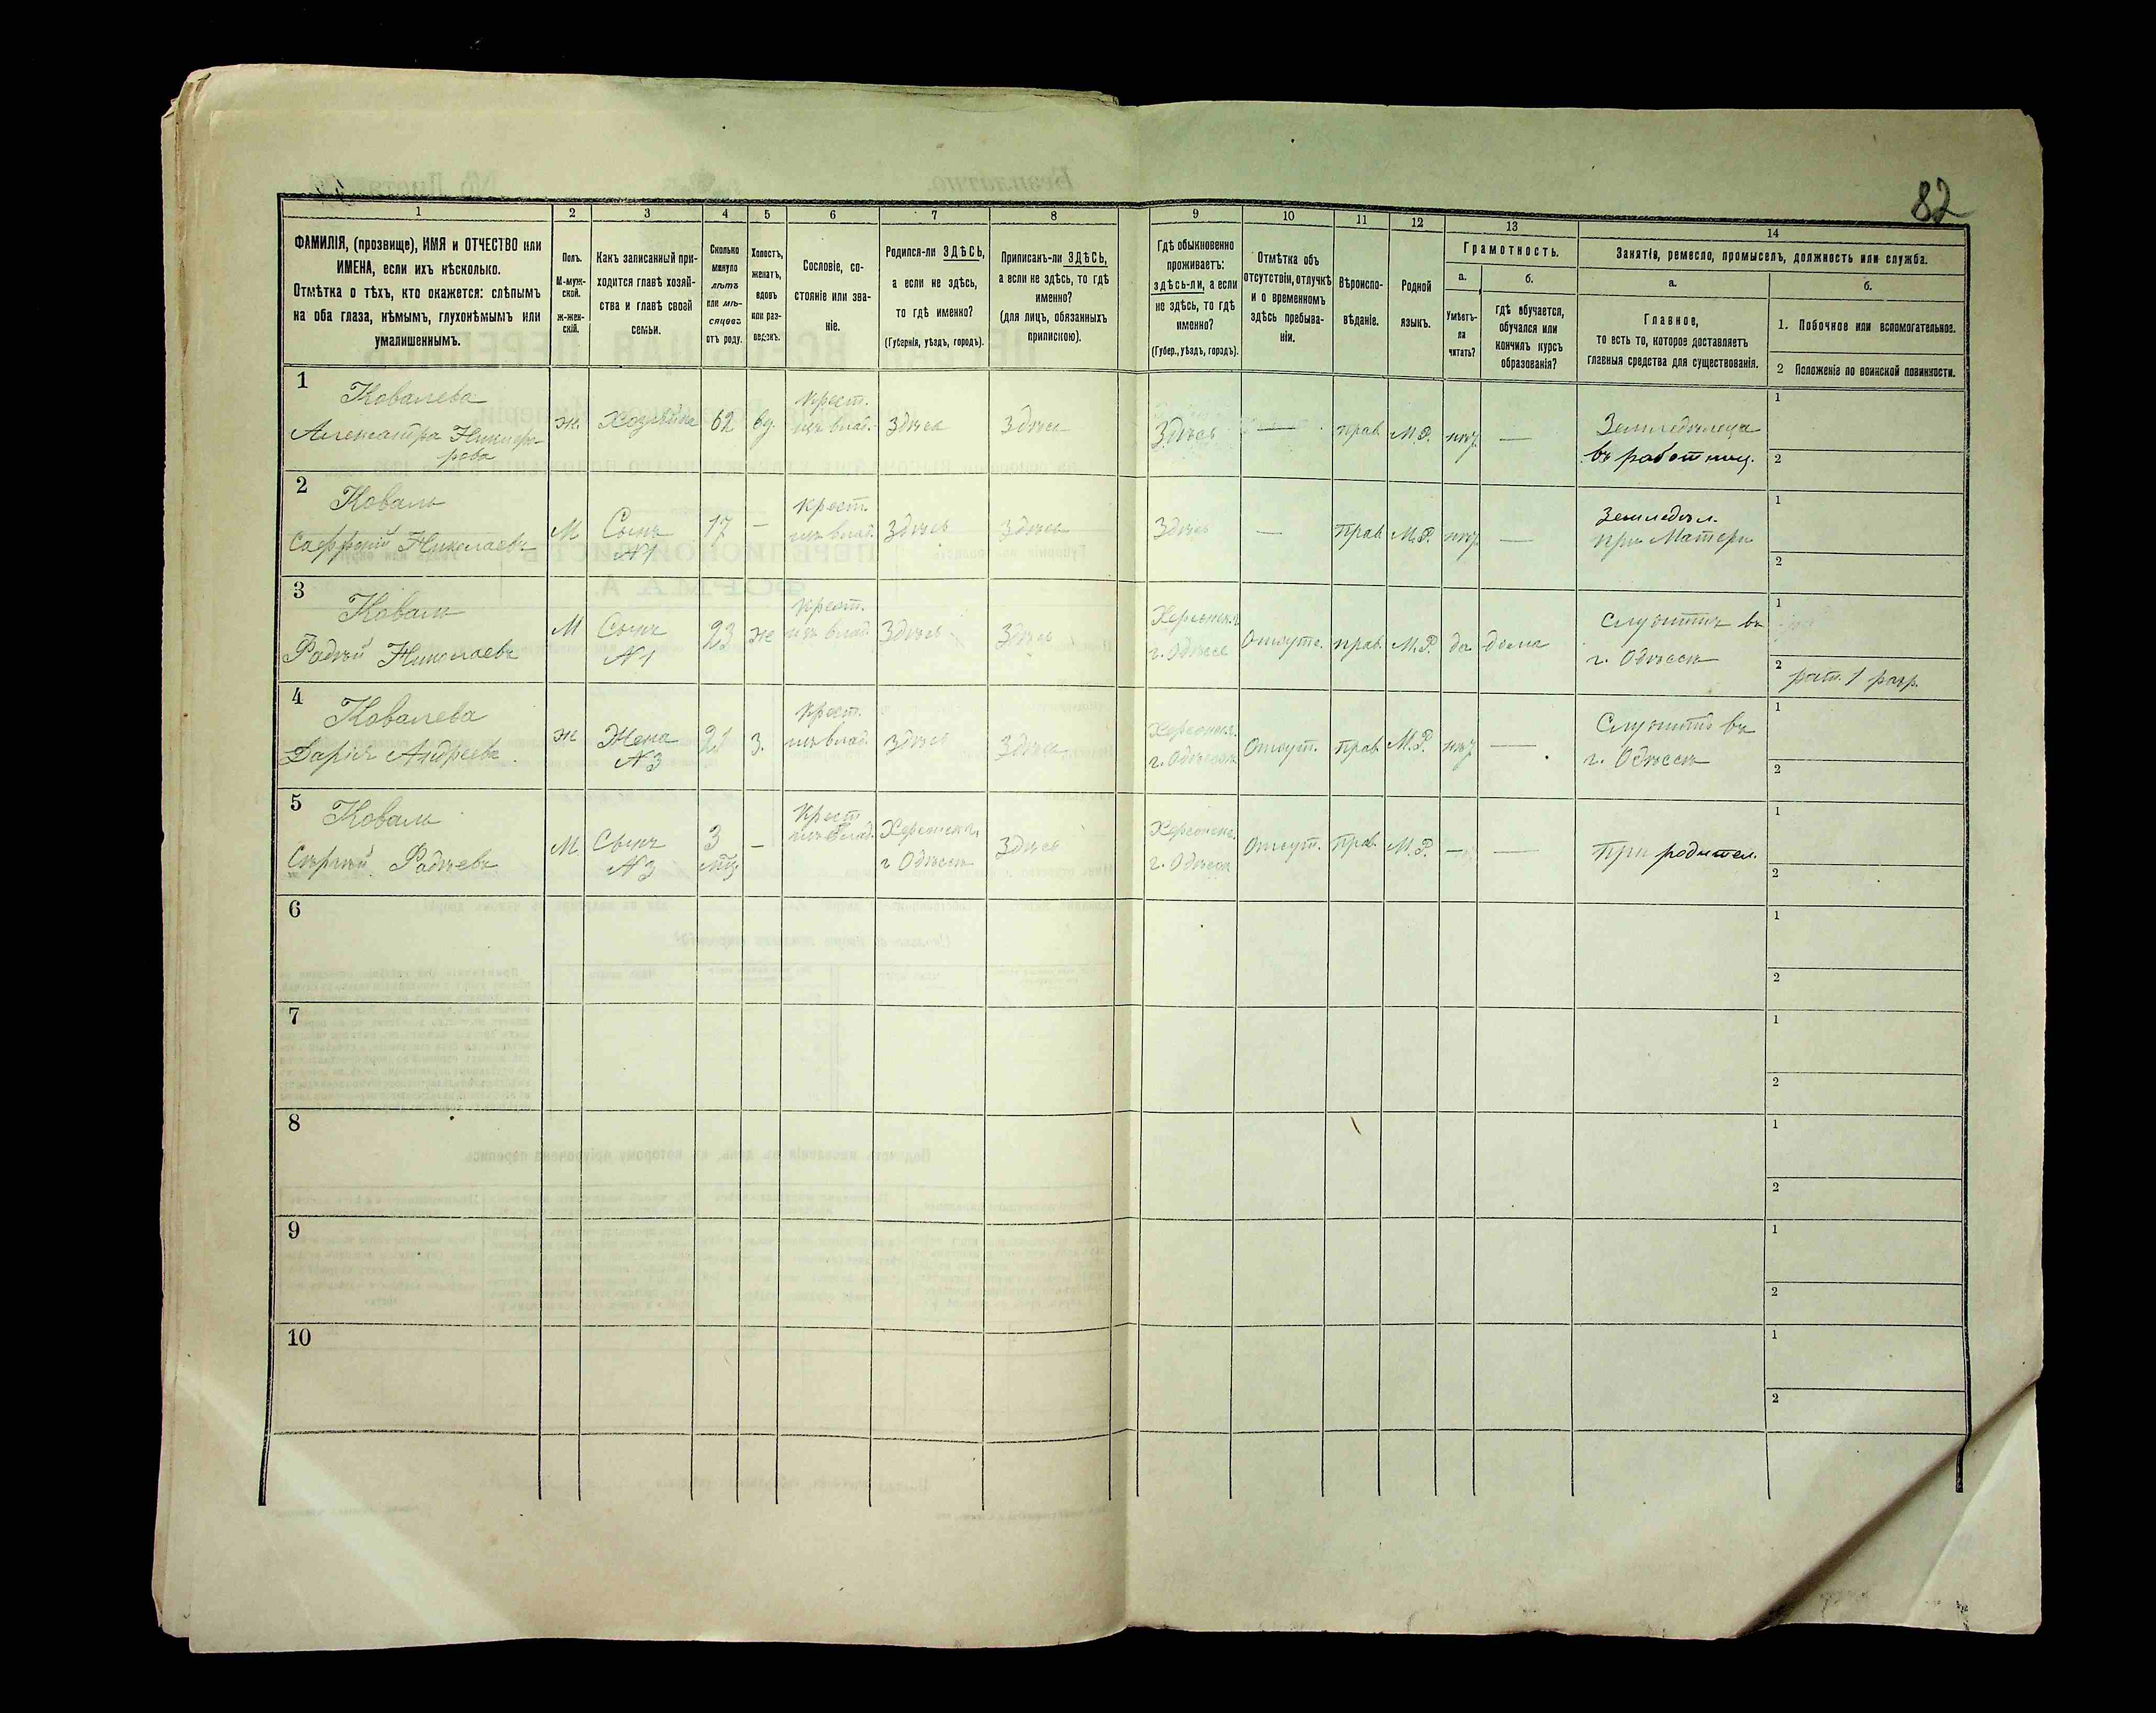 82
1
2
3
4
5
6
7
8
9
10
11
12
13
14
ФАМИЛІЯ, (прозвище), ИМЯ и ОТЧЕСТВО или
ИМЕНА, если ихъ нѣсколько.
Отмѣтка о тѣхъ, кто окажется: слѣпымъ
на оба глаза, нѣмымъ, глухонѣмымъ или
умалишеннымъ.
Полъ.
М-муж-
ской.
ж-жен-
скій.
Какъ записанный при-
ходится главѣ хозяй-
ства и главѣ своей
семьи.
Сколько
минуло
лѣтъ
или мѣ-
сяцевъ
отъ роду.
Холостъ,
женатъ,
вдовъ
или раз-
веденъ.
Сословіе, со-
стояніе или зва-
ніе.
Родился-ли ЗДѢСЬ,
а если не здѣсь,
то гдѣ именно?
(Губернія, уѣздъ, городъ).
Приписанъ-ли ЗДѢСЬ,
а если не здѣсь, то гдѣ
именно?
(для лицъ, обязанныхъ
припискою).
Гдѣ обыкновенно
проживаетъ:
здѣсь-ли, а если
не здѣсь, то гдѣ
именно?
(Губер., уѣздъ, городъ).
Отмѣтка объ
отсутствіи, отлучкѣ
и о временномъ
здѣсь пребыва-
ніи.
Вѣроиспо-
вѣданіе.
Родной
языкъ.
Грамотность.
а.
Умѣетъ-
ли
читать?
б.
гдѣ обучается,
обучался или
кончилъ курсъ
образованія?
Занятія, ремесло, промыселъ, должность или служба.
а.
Главное,
то есть то, которое доставляетъ
главныя средства для существованія.
б.
1. Побочное или вспомогательное.
2 Положеніе по воинской повинности.
1
Ковалева
Александра Никифо-
рова
ж
Хозяйка
62
вд.
крест.
изъ влад.
Здѣсь
Здѣсь
Здѣсь
—
прав.
М.Р.
нѣт
—
Земледѣлица
въ работниц.
1
2
2
Коваль
Николаевъ
М
Сынъ
№1
17
—
крест.
изъ влад.
Здѣсь
Здѣсь
Здѣсь
—
прав
М.Р.
нѣт
—
Земледѣл.
при Матери
1
2
3
Коваль
Фадѣй Николаевъ
М
Сынъ
№1
23
же
крест.
изъ влад
Здѣсь
Здѣсь
Херсонск.
г. Одесса
Отсутс.
прав.
М.Р.
да
дома
Служитъ въ
г. Одѣссѣ
1
2
рат. 1 разр.
4
Ковалева
Дарія Андреева.
ж
Жена
№3
21
з.
крест.
изъ влад.
Здѣсь
Здѣсь
Херсонск.
г. Одѣссѣ
Отсут.
прав
М.Р.
нѣт
—
Служитъ въ
г. Одѣссѣ
1
2
5
Коваль
Сѣргѣй Фадѣевъ
М
Сынъ
№3
3
мѣц
—
Крест
изъ влад.
Херсонск.
г Одѣссѣ
Здѣсь
Херсонск.
г. Одѣссѣ
Отсут.
прав.
М.Р.
—
—
При родител.
1
2
6
1
2
7
1
2
8
1
2
9
1
2
10
1
2